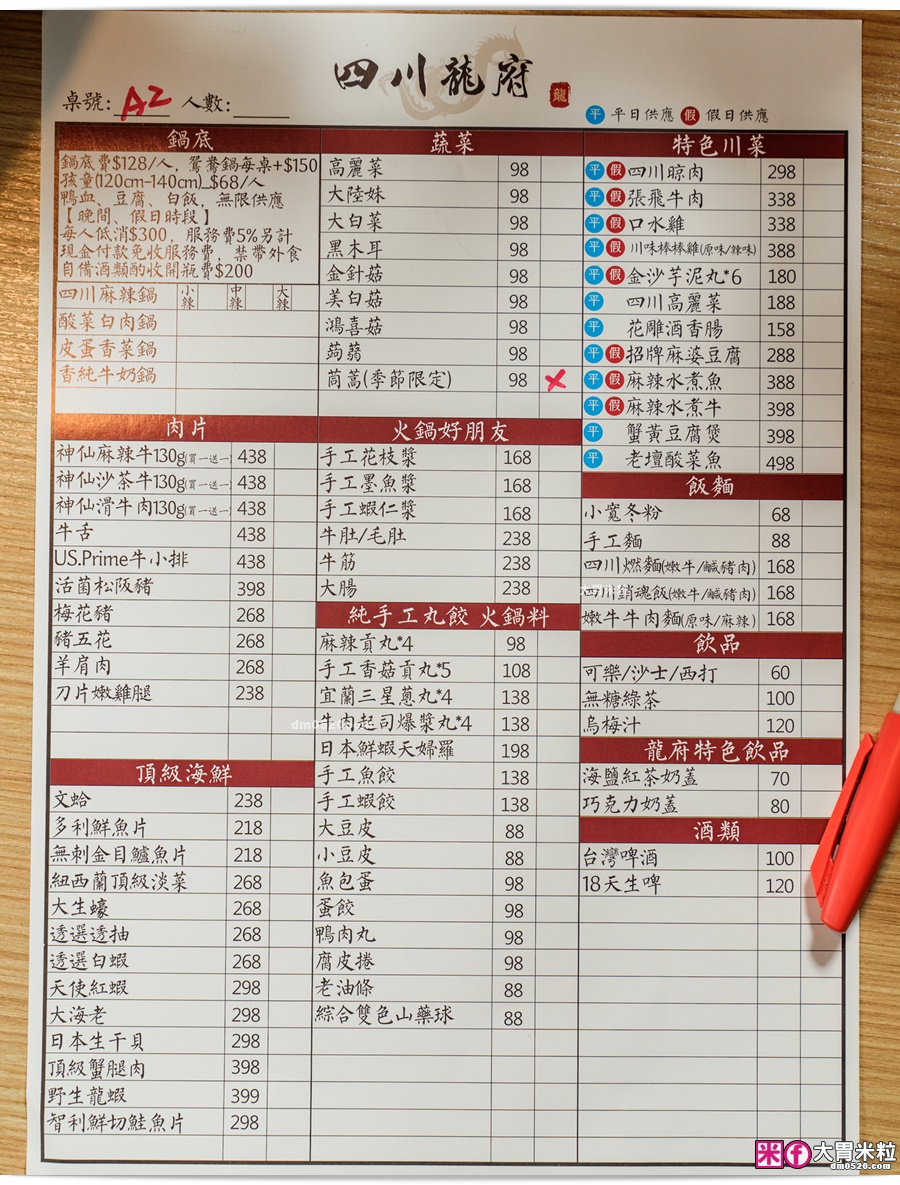 四川龍府
龍
桌號: A2 人數:
平 平日供應 假 假日供應
鍋底
鍋底費$128/人, 鴛鴦鍋每桌+$150
孩童(120cm-140cm) $68/人
鴨血、豆腐、白飯, 無限供應
【晚間、假日時段】
每人低消$300, 服務費5%另計
現金付款免收服務費, 禁帶外食
自備酒類酌收開瓶費$200
四川麻辣鍋 小辣 中辣 大辣
酸菜白肉鍋
皮蛋香菜鍋
香純牛奶鍋
肉片
神仙麻辣牛130g(買一送一) 438
神仙沙茶牛130g(買一送一) 438
神仙滑牛肉130g(買一送一) 438
牛舌 438
US.Prime牛小排 438
活菌松阪豬 398
梅花豬 268
豬五花 268
羊肩肉 268
刀片嫩雞腿 238
頂級海鮮
文蛤 238
多利鮮魚片 218
無刺金目鱸魚片 218
紐西蘭頂級淡菜 268
大生蠔 268
透選透抽 268
透選白蝦 268
天使紅蝦 298
大海老 298
日本生干貝 298
頂級蟹腿肉 398
野生龍蝦 399
智利鮮切鮭魚片 298
蔬菜
高麗菜 98
大陸妹 98
大白菜 98
黑木耳 98
金針菇 98
美白菇 98
鴻喜菇 98
蒟蒻 98
茼蒿(季節限定) 98 ×
火鍋好朋友
手工花枝漿 168
手工墨魚漿 168
手工蝦仁漿 168
牛肚/毛肚 238
牛筋 238
大腸 238
純手工丸餃 火鍋料
麻辣貢丸*4 98
手工香菇貢丸*5 108
宜蘭三星蔥丸*4 138
牛肉起司爆漿丸*4 138
日本鮮蝦天婦羅 198
手工魚餃 138
手工蝦餃 138
大豆皮 88
小豆皮 88
魚包蛋 98
蛋餃 98
鴨肉丸 98
腐皮捲 98
老油條 88
綜合雙色山藥球 88
特色川菜
平 假 四川晾肉 298
平 假 張飛牛肉 338
平 假 口水雞 338
平 假 川味棒棒雞(原味/辣味) 388
平 假 金沙芋泥丸*6 180
平 四川高麗菜 188
平 花雕酒香腸 158
平 假 招牌麻婆豆腐 288
平 假 麻辣水煮魚 388
平 假 麻辣水煮牛 398
平 蟹黃豆腐煲 398
平 老壇酸菜魚 498
飯麵
小寬冬粉 68
手工麵 88
四川燃麵(嫩牛/鹹豬肉) 168
四川銷魂飯(嫩牛/鹹豬肉) 168
嫩牛牛肉麵(原味/麻辣) 168
飲品
可樂/沙士/西打 60
無糖綠茶 100
烏梅汁 120
龍府特色飲品
海鹽紅茶奶蓋 70
巧克力奶蓋 80
酒類
台灣啤酒 100
18天生啤 120
米 f 大胃米粒
dm0520.com